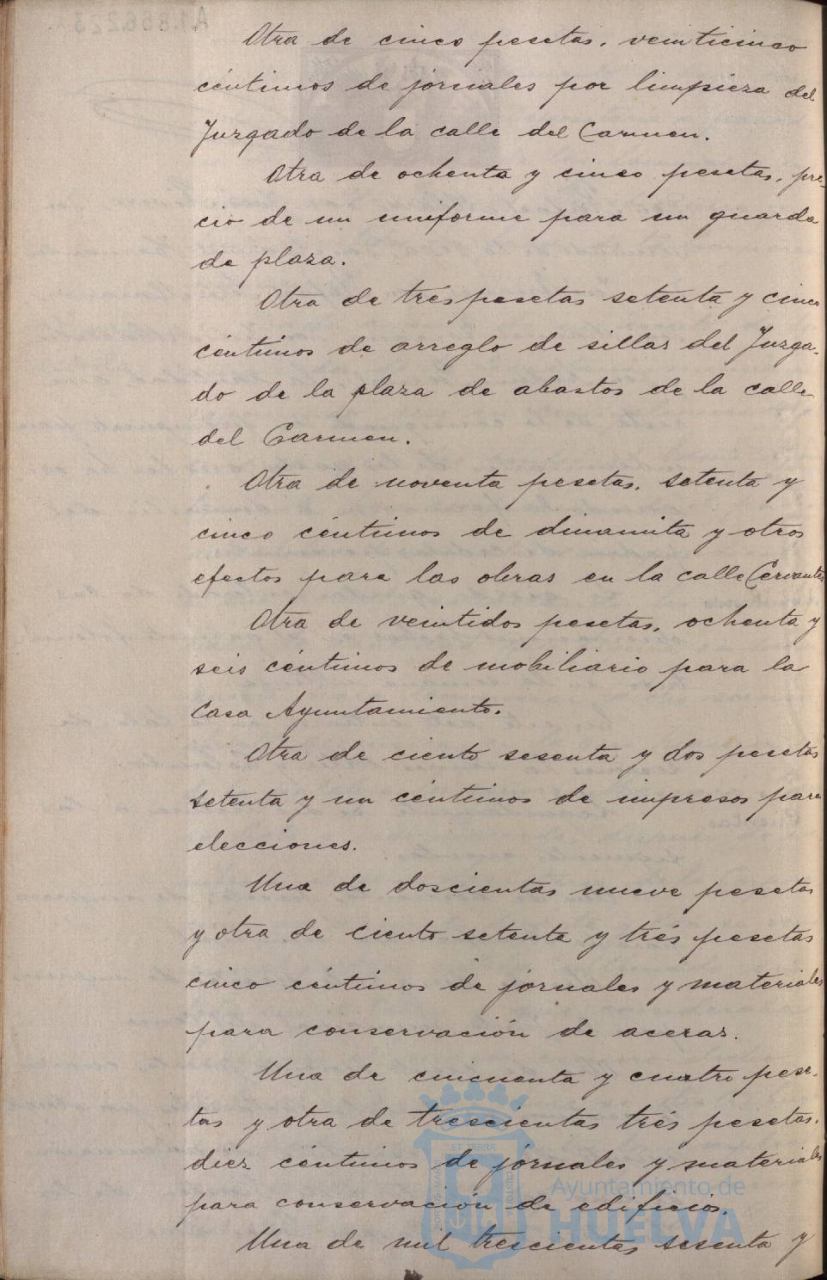 Otra de cinco pesetas, veinticinco
céntimos de jornales por limpieza del
Juzgado de la calle del Carmen.
Otra de ochenta y cinco pesetas, pre-
cio de un uniforme para un guarda
de plaza.
Otra de tres pesetas setenta y cinco
céntimos de arreglo de sillas del Juzga-
do de la plaza de abastos de la calle
del Carmen.
Otra de noventa pesetas, setenta y
cinco céntimos de dinamita y otros
efectos para las obras en la calle Cervantes
Otra de veintidos pesetas, ochenta y
seis céntimos de mobiliario para la
Casa Ayuntamiento.
Otra de ciento sesenta y dos pesetas
setenta y un céntimos de impresos para
elecciones.
Una de doscientas nueve pesetas
y otra de ciento setenta y trés pesetas
cinco céntimos de jornales y materiales
para conservación de aceras.
Una de cincuenta y cuatro pese-
tas y otra de trescientas trés pesetas,
diez céntimos de jornales y materiales
para conservación de edificios.
Una de mil trescientas sesenta y
Ayuntamiento de
HUELVA